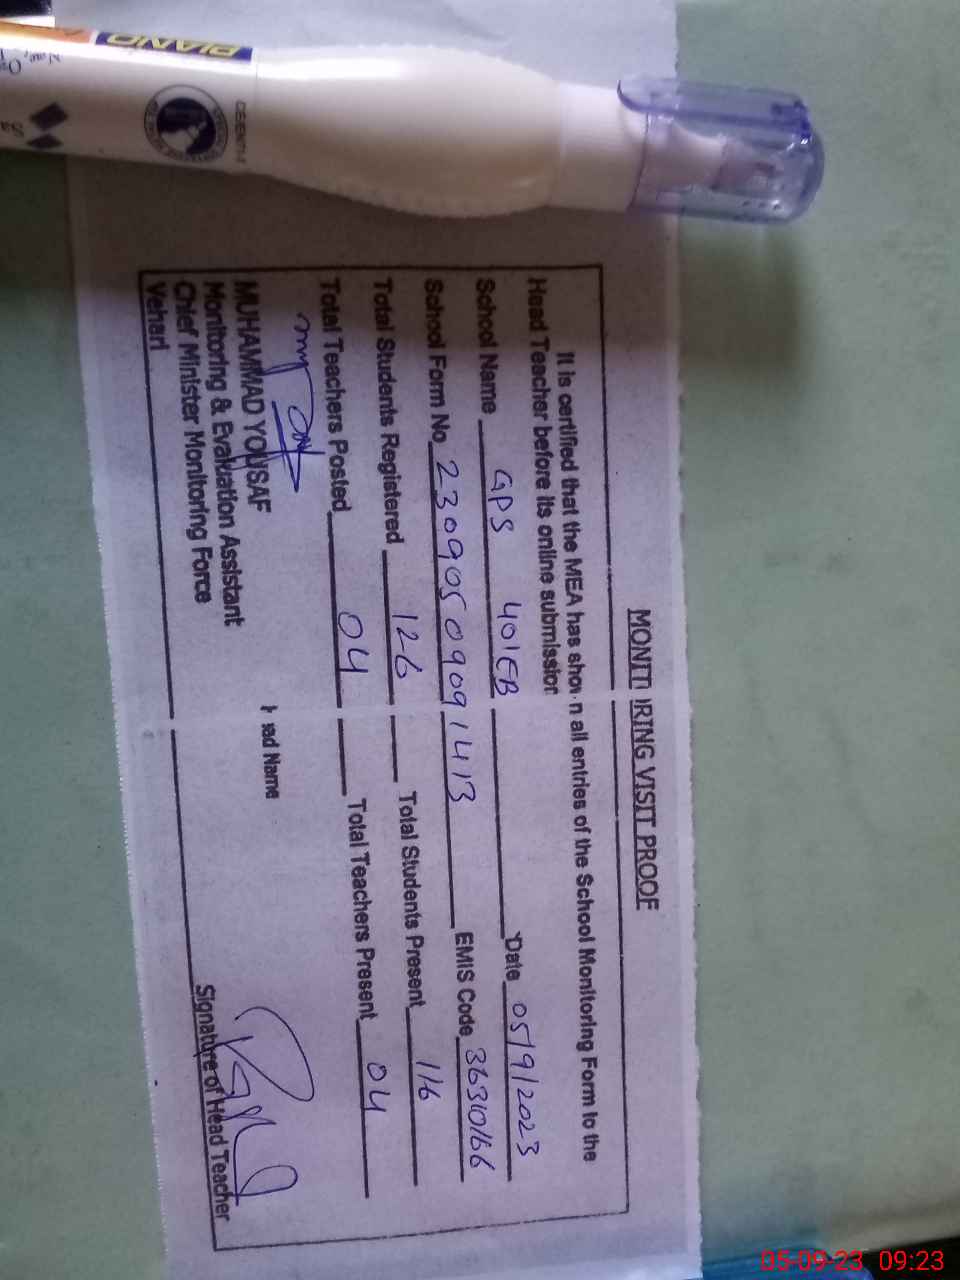 PIANO
MONITORING VISIT PROOF
It is certified that the MEA has shown all entries of the School Monitoring Form to the
Head Teacher before its online submission
School Name GPS 401EB Date 05/9/2023
School Form No 230905 0909 1413 EMIS Code 36310166
Total Students Registered 126 Total Students Present 116
Total Teachers Posted 04 Total Teachers Present 04
MUHAMMAD YOUSAF
Monitoring & Evaluation Assistant
Chief Minister Monitoring Force
Vehari
Head Name
Signature of Head Teacher
05-09-23 09:23